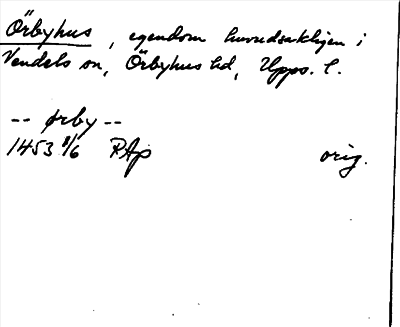 Örbyhus, egendom huvudsakligen i
Vendels sn, Örbyhus hd, Upps. l.
-- ørby --
1453 8/6 RAp orig.